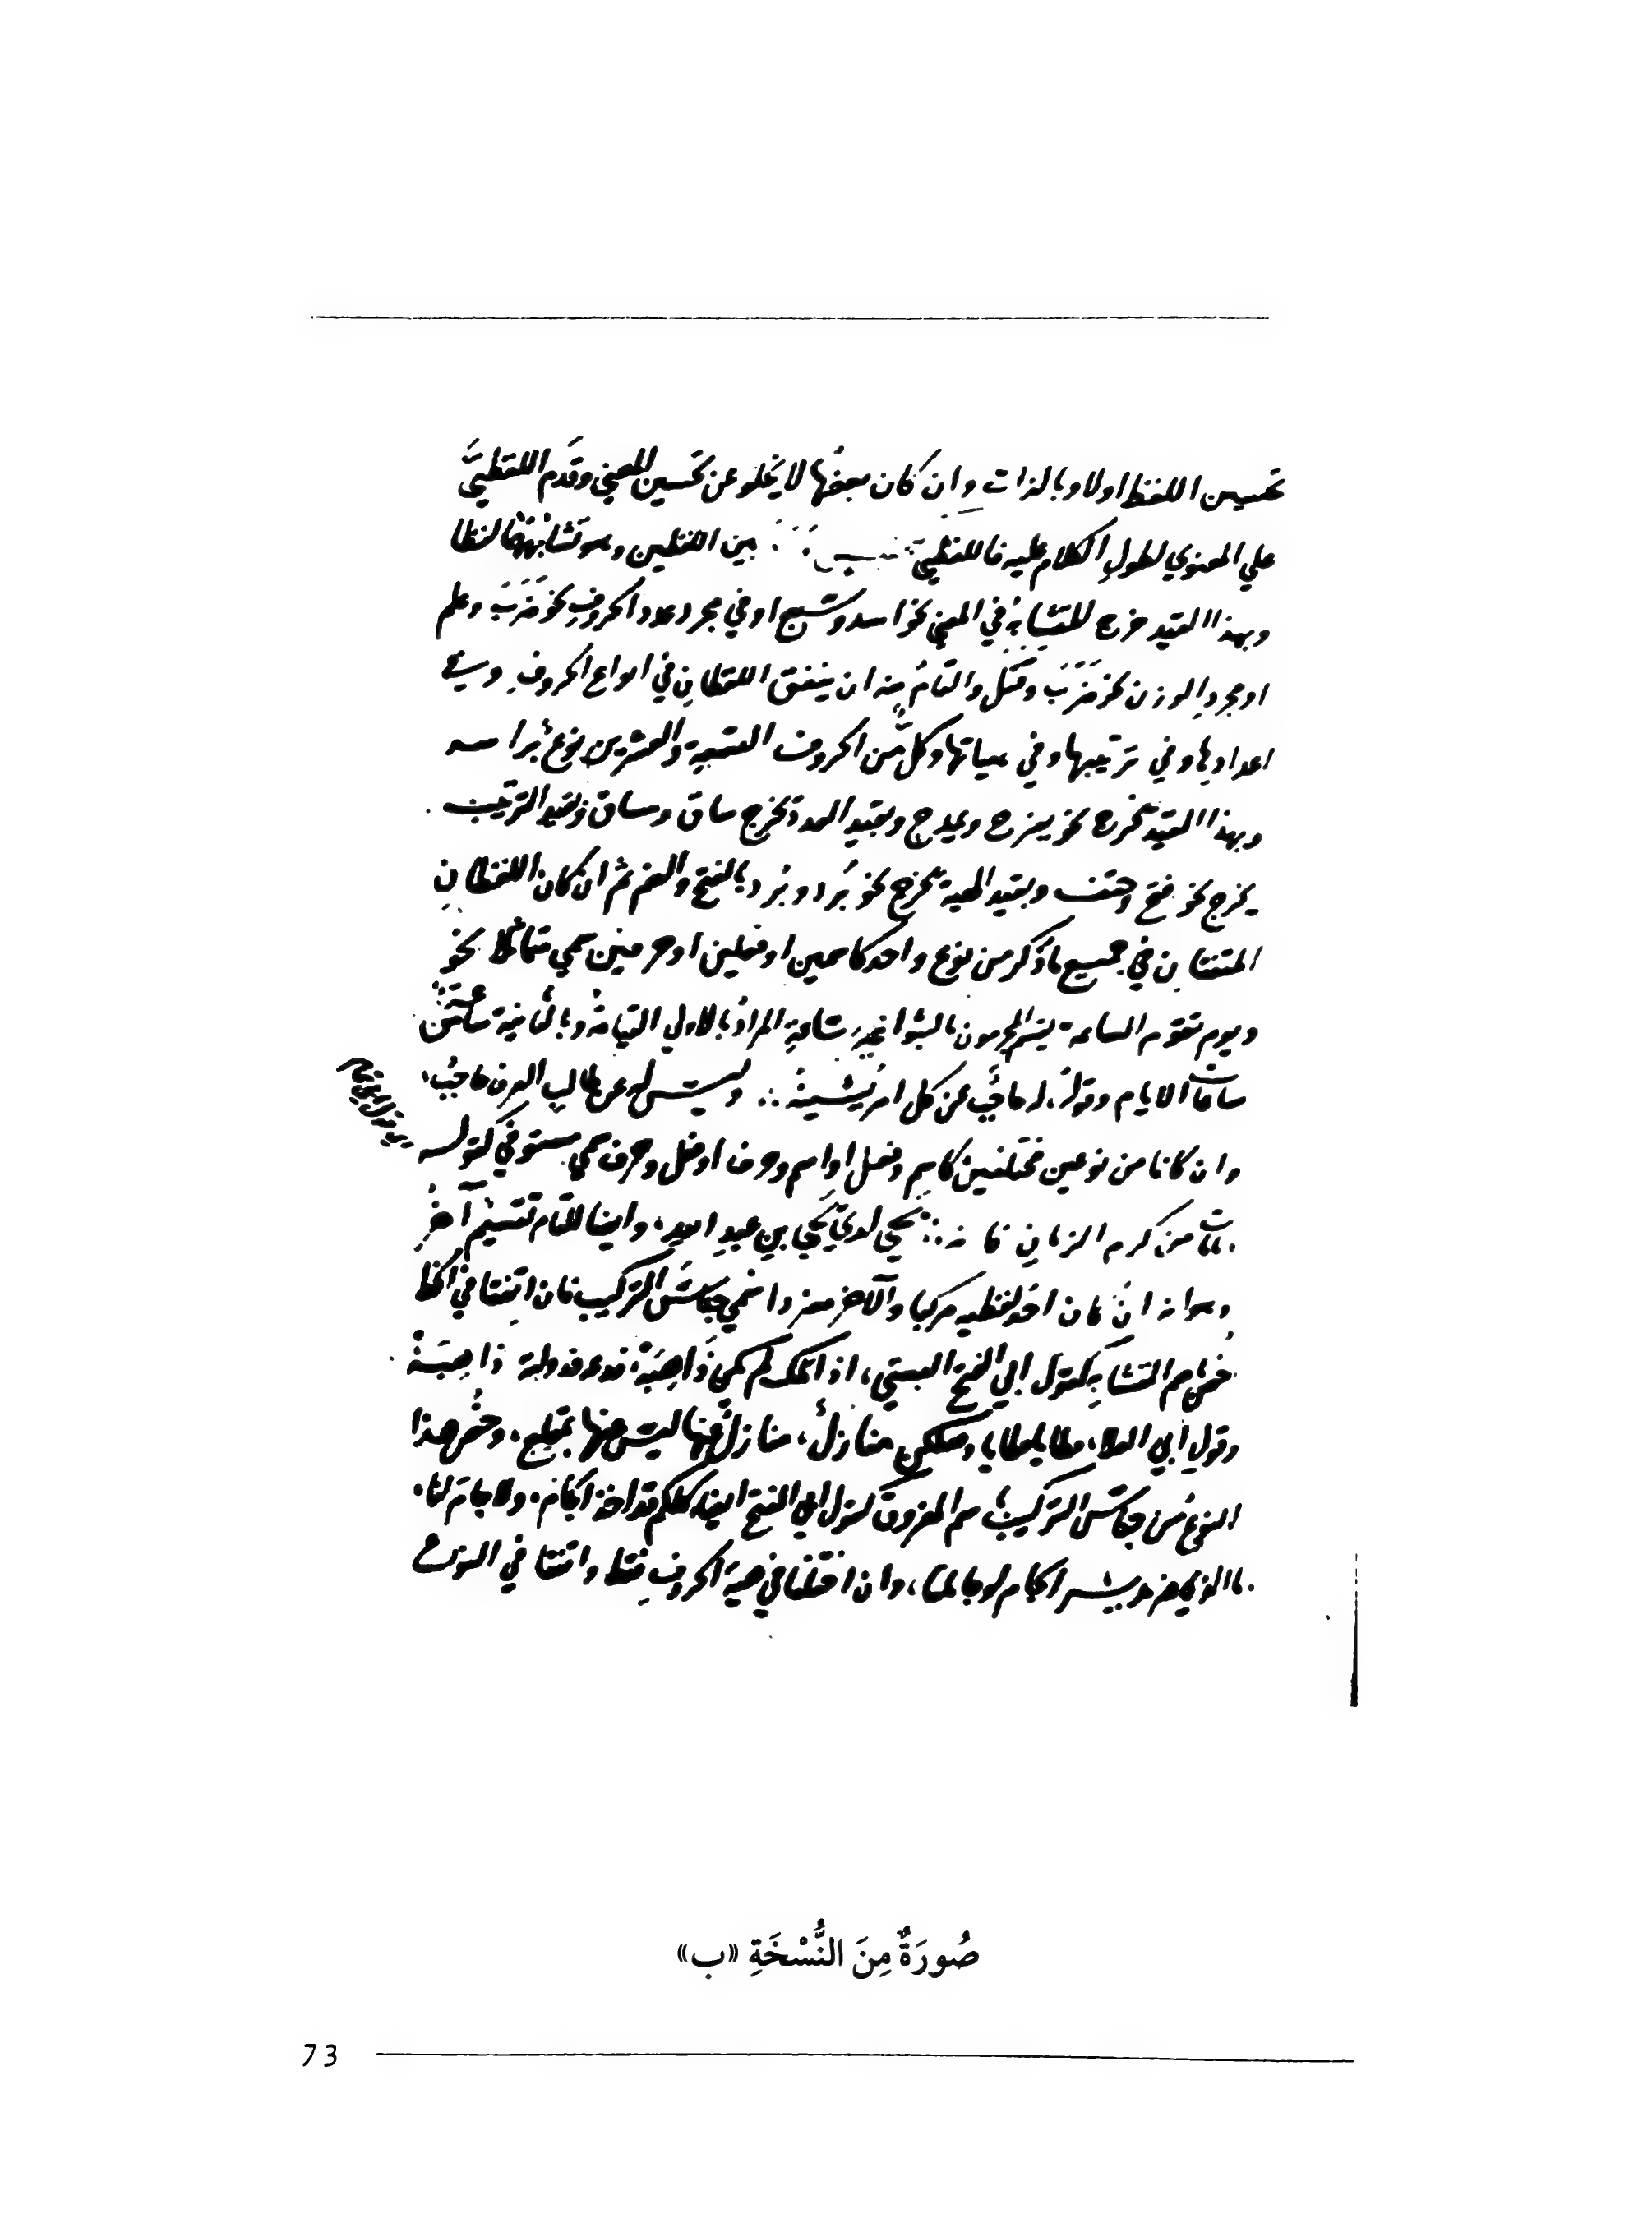 تحسين اللفظ اولا وبالذات وان كان بعضُها لا يخلو عن تحسين المعنى وقدم اللفظيَّ
علي المعنوي لطولِ الكلام عليه فاللفظيُّ بين اللفظين وهو تشابُهُهُما لفظا
وبهذا القيد خرج المتشابِهُ في المعني نحو اسد وسبع او في مجرد عدد الحروفِ نحو ضَرَبَ وعلم
او مجردِ الوزن نحو ضَرَبَ وقَتَل والتامُ منه ان يتفق اللفظانِ في انواع الحروفِ وفي
اعدادِها وفي ترتيبها وفي هياتها وكلٌّ من الحروف التسعةِ والعشرين نوعٌ براسه
وبهذا القيد يخرج نحو يفرح ويمرح وبقيد العدة يخرج ساق ومساق وبقيد الترتيب
يخرج نحو فتح وحتف وبقيد الهيئة يخرج نحو بَُرد وبُرد بالفتح والضم ثم ان كان اللفظانِ
المتفقان في جميع ما ذُكر من نوع واحد كاسمين او فعلين او حرفين سمي متماثلا نحو
ويوم تقوم الساعة يقسم المجرمون مالبثوا غير ساعةٍ المرادُ بالاولي القيامةُ وبالثانية ساعة من
ساعات الايام وقولُه له حاجبٌ عن كل امر يشينهُ ∴ وليس له عن طالبِ العرف حاجبُ
وان كانا من نوعين مختلفين كاسمٍ وفعل او اسم وحرف او فعل وحرف سمي مستوفي كقوله
ما مات من كرم الزمانِ فانه ∴ يحيي لديَّ يحيي بن عبدِ الله، وايضا للتام تقسيمٌ آخرُ
وهو انه ان كان احدُ لفظيه مركبا والآخر مفردا سمي جناسَ التركيب فان اتفقا في الخط
خُصَّ باسم المتشابِه كقول ابي الفتح البستي، اذا مَلِكٌ لم يكن ذَاهِبَهْ، فدعه فدولته ذاهِبَهْ
وقول ابي العلاء مطايا مطايا وجدكن منازلٌ، منازلٌ عنها ليس عنها بمقلع، وخُصَّ هذا
النوعُ من جناس التركيبِ باسم المفروق كقول ابي الفتح ايضا كلكم قد اخذ الجامَ، ولا جامَ لنا،
ما الذي ضر مدير الجام لو جاملنا، وان اختلفا في هيئة الحروفِ فقط واتفقا في النوع
صُورَةٌ مِنَ النُّسْخَةِ «ب»
73